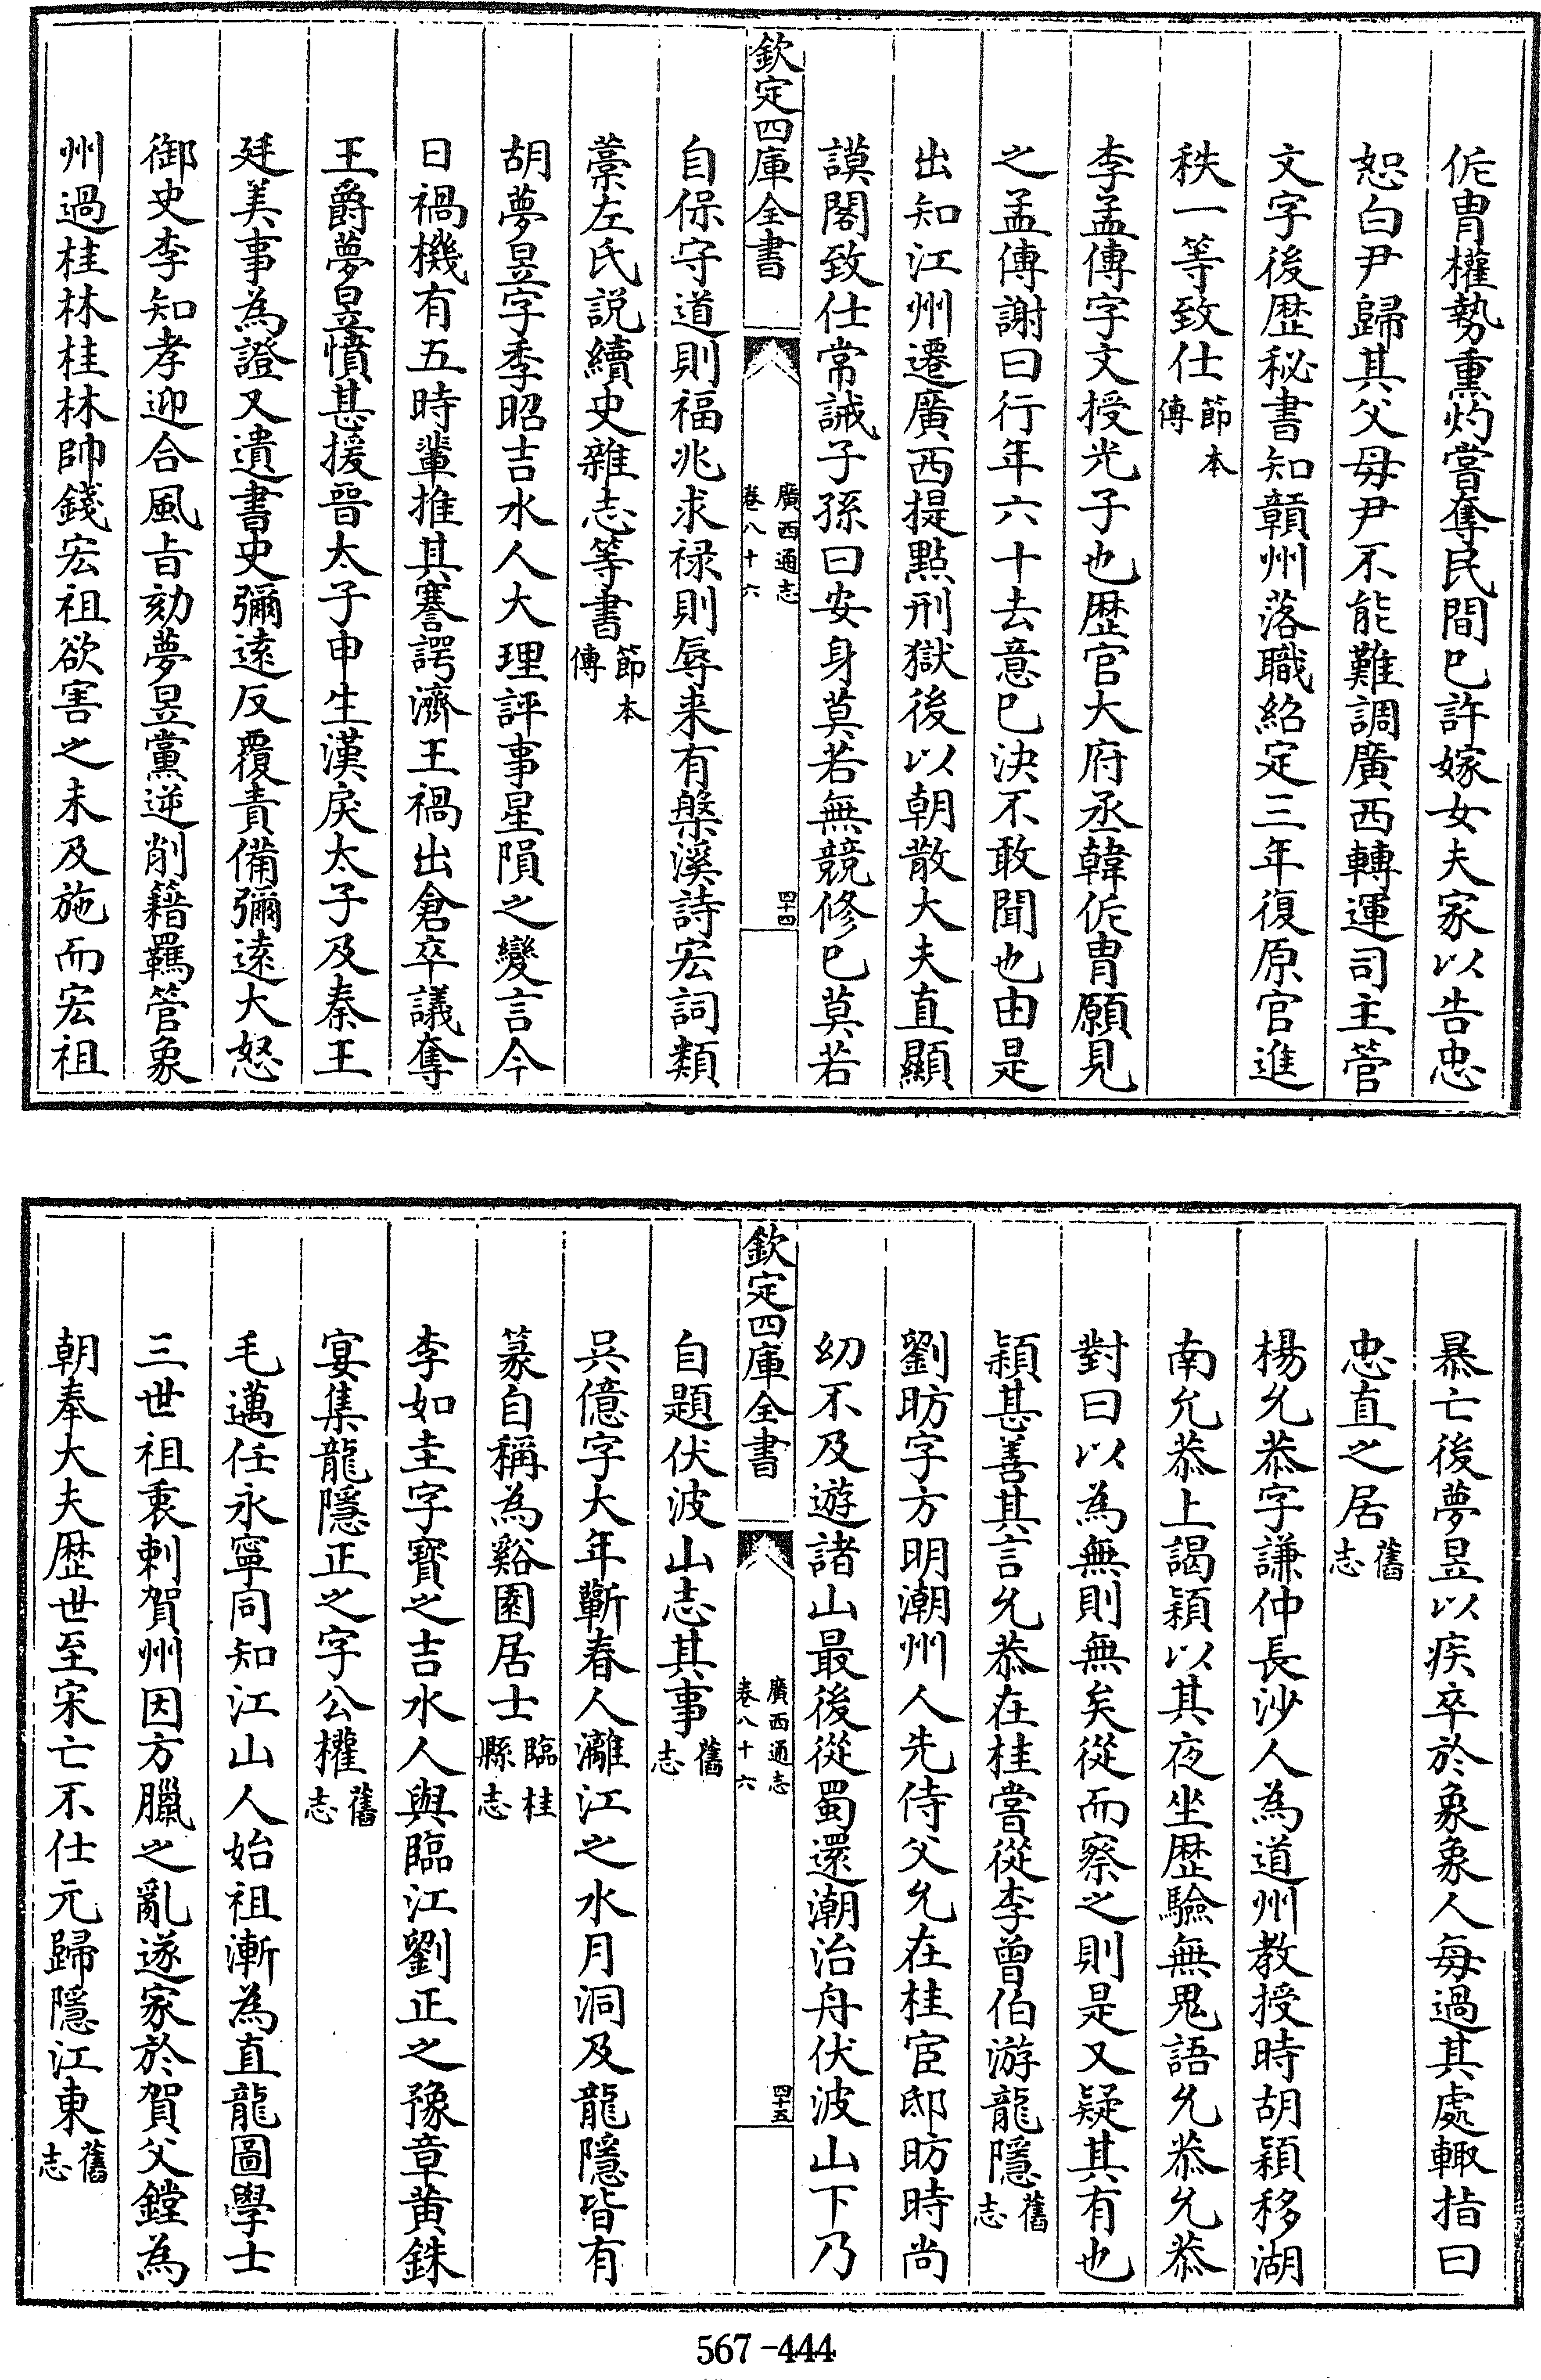 侂胄權勢熏灼嘗奪民間已許嫁女夫家以告忠
恕白尹歸其父母尹不能難調廣西轉運司主管
文字後歴秘書知贛州落職紹定三年復原官進
秩一等致仕節本傳
李孟傳字文授光子也歴官大府丞韓侂胄願見
之孟傳謝曰行年六十去意已決不敢聞也由是
出知江州遷廣西提點刑獄後以朝散大夫直顯
謨閣致仕常誡子孫曰安身莫若無競修已莫若
欽定四庫全書
廣西通志
卷八十六
四十四
自保守道則福兆求禄則辱来有槃溪詩宏詞類
藁左氏説續史雜志等書節本傳
胡夢昱字季昭吉水人大理評事星隕之變言今
日禍機有五時輩推其謇諤濟王禍出倉卒議奪
王爵夢昱憤甚援晉太子申生漢戾太子及秦王
廷美事為證又遺書史彌逺反覆責備彌逺大怒
御史李知孝迎合風㫖劾夢昱黨逆削籍羈管象
州過桂林桂林帥錢宏祖欲害之未及施而宏祖
暴亡後夢昱以疾卒於象象人毎過其處輙指曰
忠直之居舊志
楊允恭字謙仲長沙人為道州教授時胡頴移湖
南允恭上謁頴以其夜坐歴驗無鬼語允恭允恭
對曰以為無則無矣從而察之則是又疑其有也
頴甚善其言允恭在桂嘗從李曾伯游龍隱舊志
劉昉字方明潮州人先侍父允在桂宦邸昉時尚
幼不及遊諸山最後從蜀還潮治舟伏波山下乃
欽定四庫全書
廣西通志
卷八十六
四十五
自題伏波山志其事舊志
吳億字大年蘄春人灕江之水月洞及龍隱皆有
篆自稱為谿園居士臨桂縣志
李如圭字寳之吉水人與臨江劉正之豫章黄銖
宴集龍隱正之字公權舊志
毛邁任永寧同知江山人始祖漸為直龍圖學士
三世祖衷刺賀州因方臘之亂遂家於賀父鏜為
朝奉大夫歴世至宋亡不仕元歸隱江東舊志
567-444